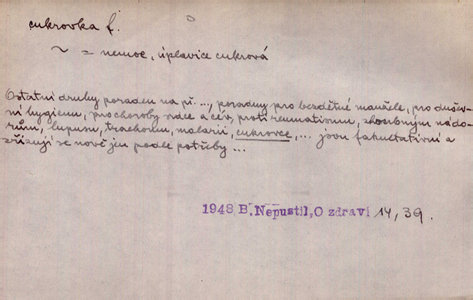 cukrovka f.
~ = nemoc, úplavice cukrová
Ostatní druhy poraden na př. ..., poradny pro bezdětné manžele, pro dušev-
ní hygienu, pro choroby srdce a cev, proti reumatismu, zhoubným nádo-
rům, lupusu, trachomu, malarii, cukrovce, ... jsou fakultativní a
zřizují se nově jen podle potřeby ...
1948 B. Nepustil, O zdraví 14, 39.